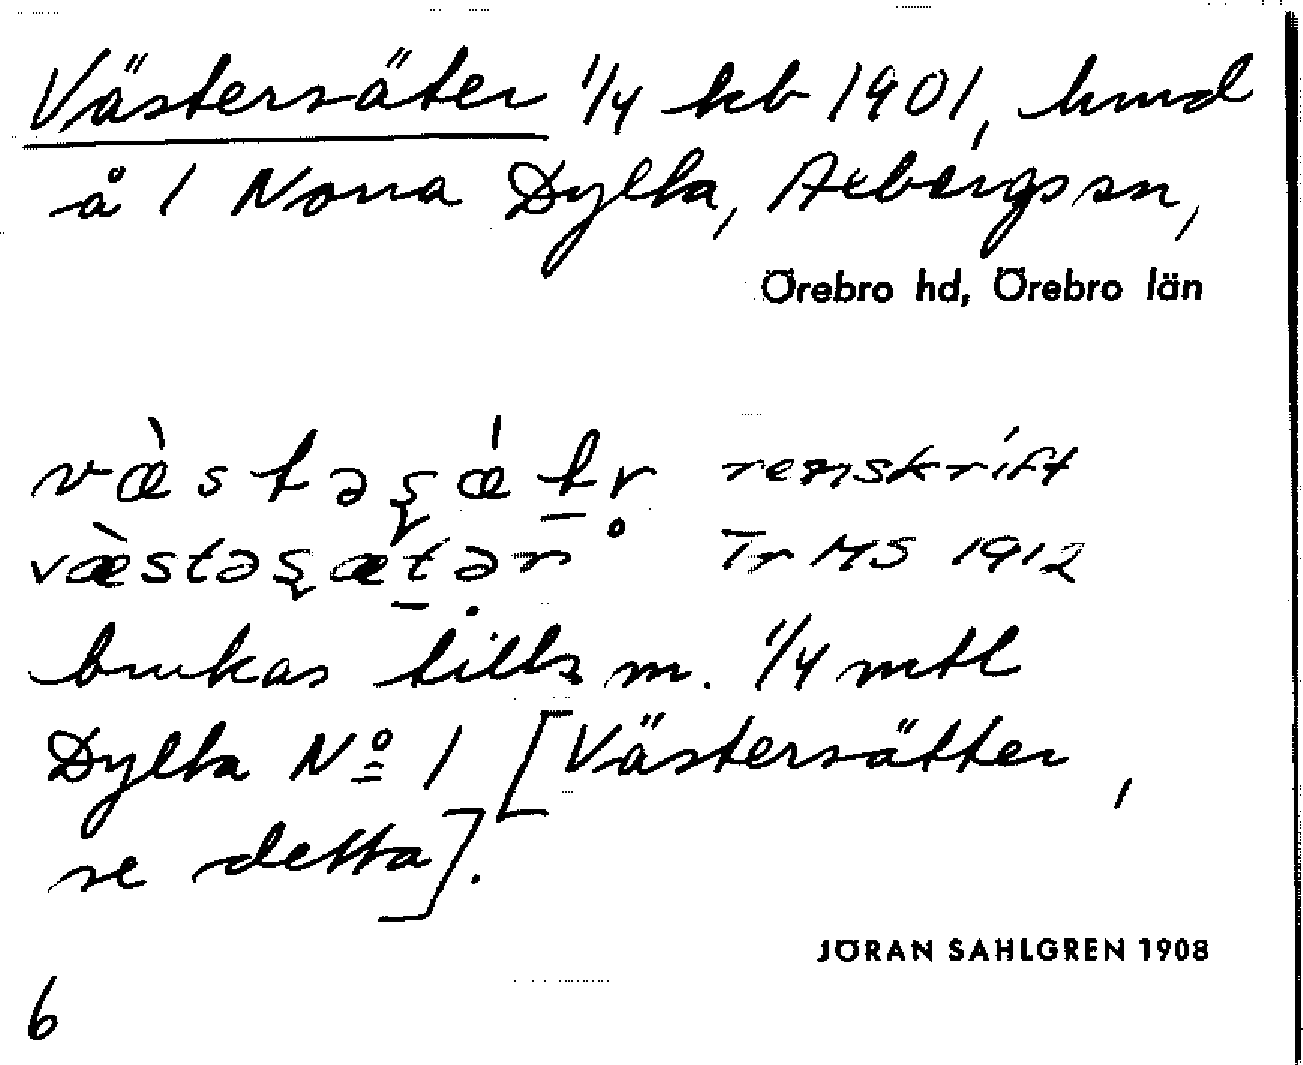 Västersäter 1/4 kb 1901, hmd
å 1 Norra Dylta, Axbergs sn,
Örebro hd, Örebro län
væ̀stəʂǽt̠r̥ renskrift
væ̀stəʂæt̠ər Tr MS 1912
brukas tills m. 1/4 mtl
Dylta Nº 1 [Västersätter,
se detta].
JÖRAN SAHLGREN 1908
6